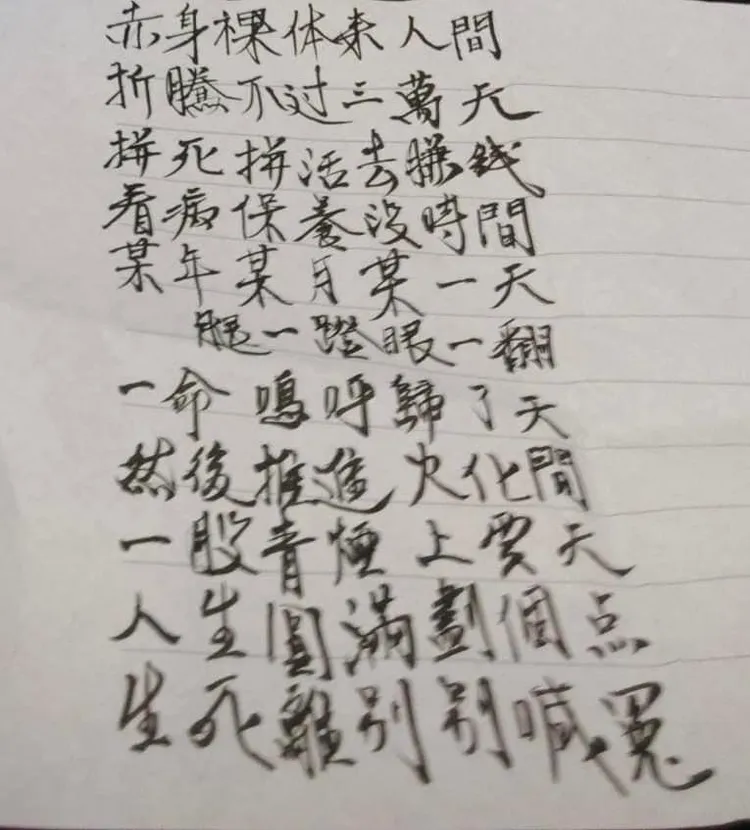 赤身裸体来人間
折騰不过三萬天
拼死拼活去賺錢
看病保養没時間
某年某月某一天
腿一蹬眼一翻
一命嗚呼歸了天
然後推進火化間
一股青煙上雲天
人生圓滿劃個点
生死離别别喊冤